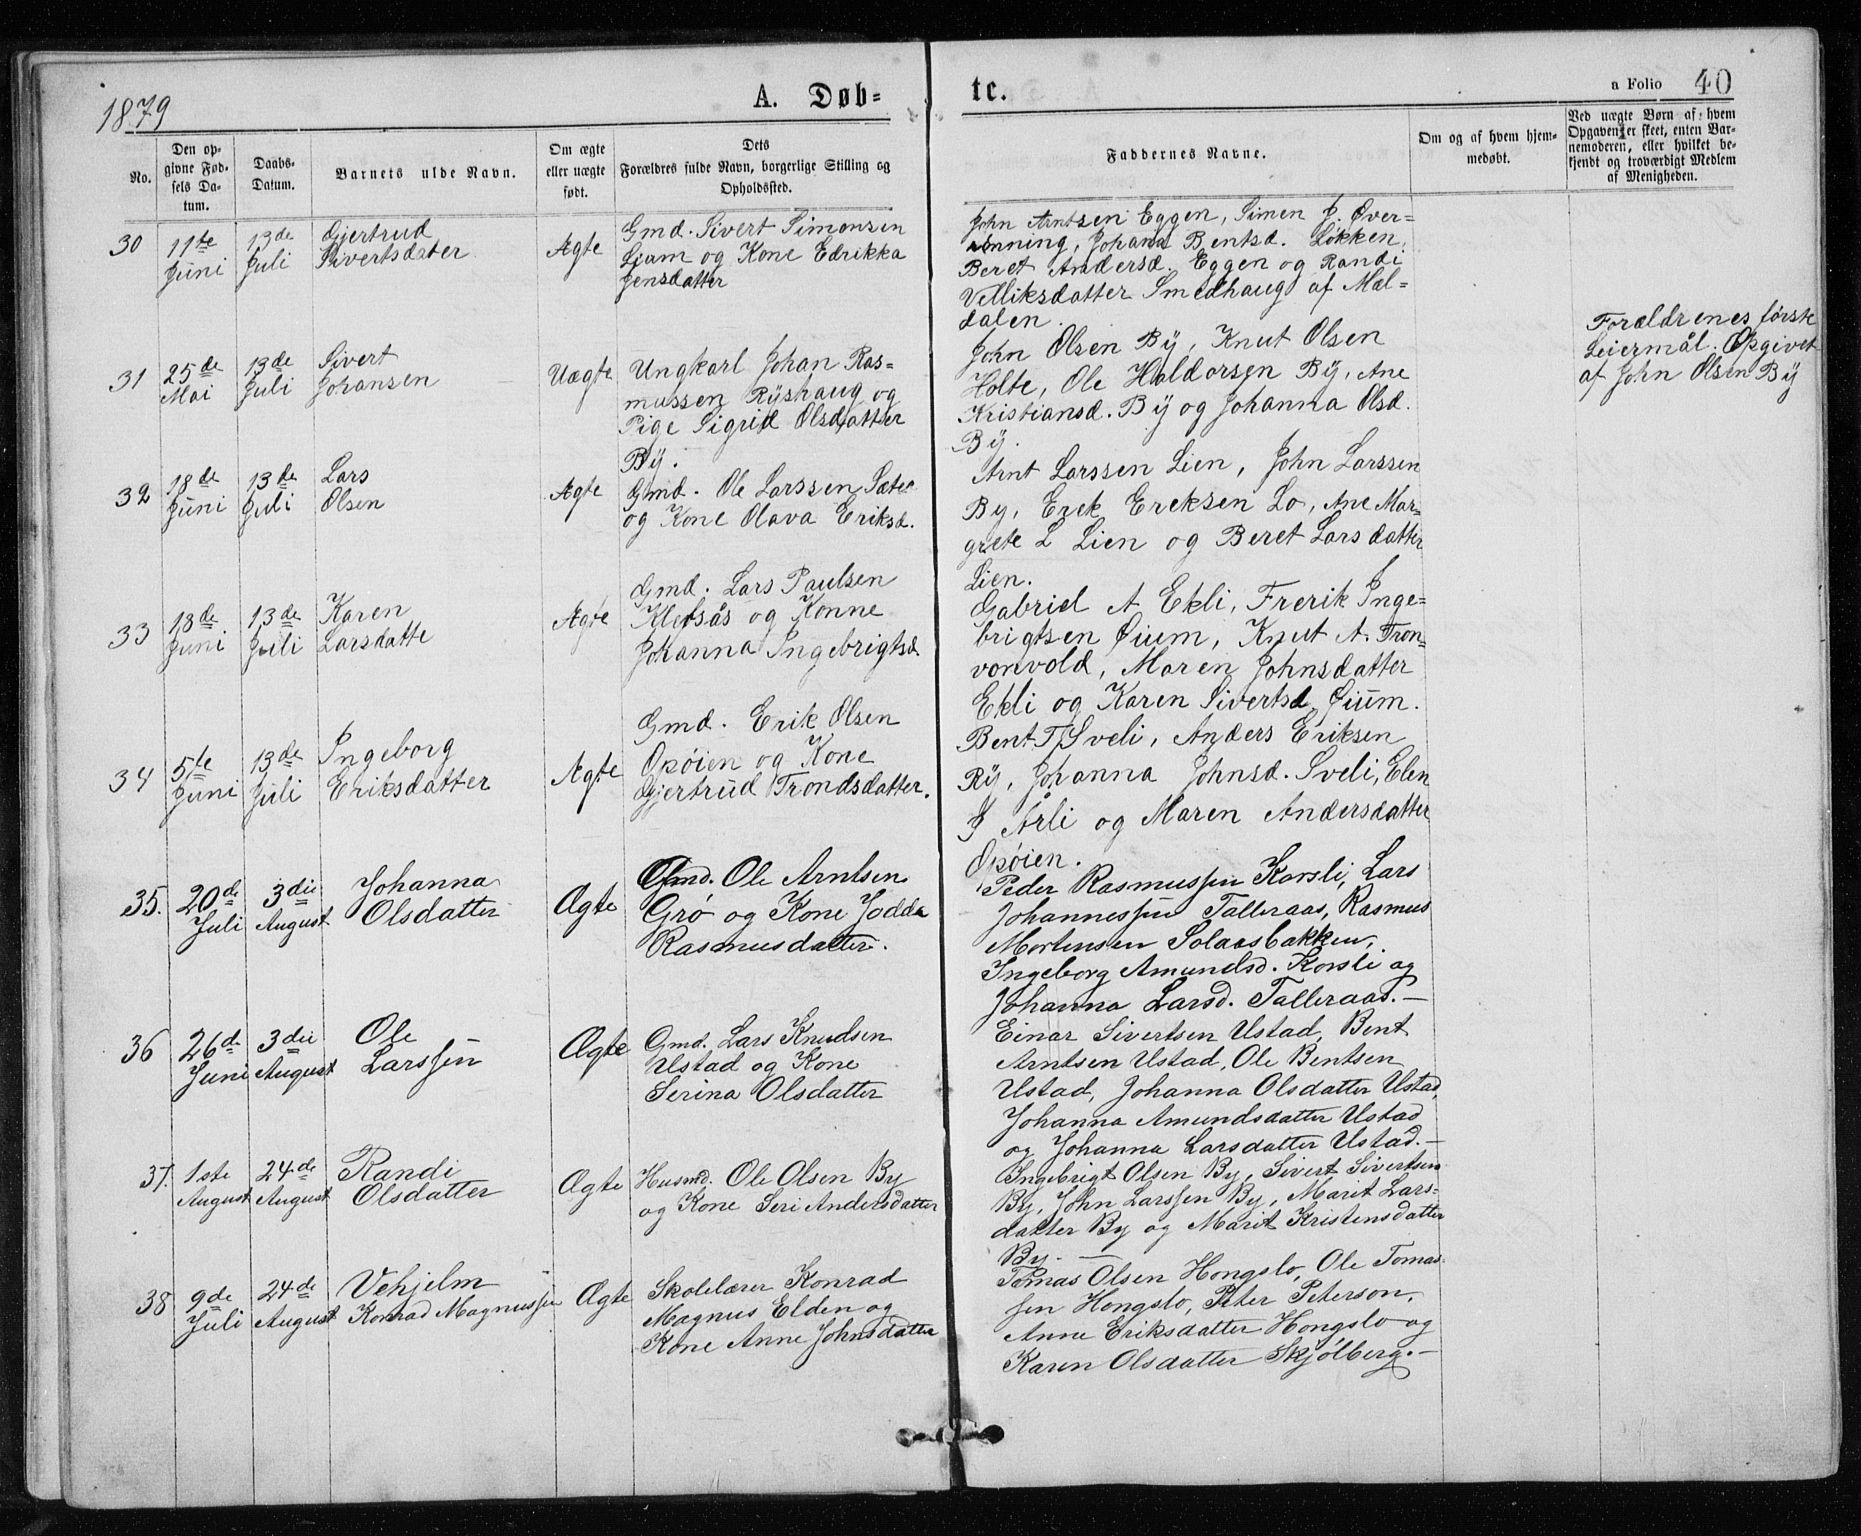 1879
A. Døb-
te.
a Folio 40
No.
Den op-
givne Fød-
sels Da-
tum.
Daabs-
Datum.
Barnets ulde Navn.
Om ægte
eller uægte
født.
Dets
Forældres fulde Navn, borgerlige Stilling og
Opholdssted.
Faddernes Navne.
Om og af hvem hjem-
medøbt.
Ved uægte Børn af hvem
Opgaven er skeet, enten Bar-
nemoderen, eller hvilket be-
kjendt og troværdigt Medlem
af Menigheden.
30
11te
Juni
13de
Juli
Gjertrud
Sivertsdater
Ægte
Gmd. Sivert Simonsen
Øium og Kone Edrikka
Jensdatter
John Arntsen Eggen, Simen J. Øver-
rönning, Johana Bentsd. Løkken,
Beret Andersd. Eggen og Randi
Velliksdatter Smedhaug af Mæl-
dalen.
31
25de
Mai
13de
Juli
Sivert
Johansen
Uægte
Ungkarl Johan Ras-
mussen Ryshaug og
Pige Sigrid Olsdatter
By.
John Olsen By, Knut Olsen
Holte, Ole Haldorsen By, Ane
Kristiansd. By og Johanna Olsd.
By.
Forældrenes første
Leiermål. Opgivet
af John Olsen By
32
18de
Juni
13de
Juli
Lars
Olsen
Ægte
Gmd. Ole Larssen Sæter
og Kone Olava Eriksd.
Arnt Larssen Lien, John Larssen
By, Erek Ereksen Lo, Ane Mar-
grete L Lien og Beret Larsdatter
Lien.
33
18de
Juni
13de
Juli
Karen
Larsdatte
Ægte
Gmd. Lars Paulsen
Klevsås og Konne
Johanna Ingebrigtsd
Gabriel A Ekli, Frerik Inge-
brigtsen Øium, Knut A. Tron-
vonvold, Maren Johnsdatter
Ekli og Karen Sivertsd Øium.
34
5te
Juni
13de
Juli
Ingeborg
Eriksdatter
Ægte
Gmd. Erik Olsen
Opøien og Kone
Gjertrud Trondsdatter.
Bent T Sveli, Anders Eriksen
Ry, Johanna Johnsd. Sveli, Elen
J Årli og Maren Andersdatter
Opøien.
35.
20de
Juli
3die
August
Johanna
Olsdatter
Ægte
Gmd. Ole Arntsen
Grø og Kone Jodda
Rasmusdatter.
Peder Rasmussen Korsli, Lars
Johannessen Talleraas, Rasmus
Mortensen Solaasbakken,
Ingeborg Amundsd. Korsli og
Johanna Larsd. Talleraas.—
36
26de
Juni
3die
August
Ole
Larssen
Ægte
Gmd. Lars Knudsen
Ustad og Kone
Serina Olsdatter
Einar Sivertsen Ustad, Bent
Arntsen Ustad, Ole Bentsen
Ustad, Johanna Olsdatter Ustad,
Johanna Amundsdatter Ustad
og Johanna Larsdatter Ustad.—
37.
1ste
August
24de
August
Randi
Olsdatter
Ægte
Husmd. Ole Olsen By
og Kone Seri Andersdatter
Ingebrigt Olsen By, Sivert Sivertsen
By, John Larssen By, Marit Lars-
datter By og Marit Kristensdatter
By.—
38
9de
Juli
24de
August
Vehjelm
Konrad Magnussen
Ægte
Skolelærer Konrad
Magnus Elden og
Kone Anne Johnsdatter
Tomas Olsen Hongslo, Ole Tomas-
sen Hongslo, Peter Peterson,
Anne Eriksdatter Hongslo og
Karen Olsdatter Skjølberg.—